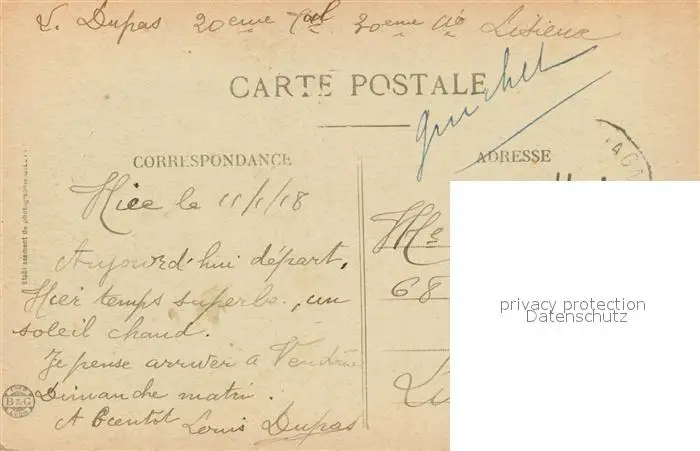 L. Dupas 20eme 30eme Lisieux
CARTE POSTALE
guichet
CORRESPONDANCE
ADRESSE
Nice le 11/1/18
Aujourd'hui départ,
Hier temps superbe, un
soleil chaud.
Je pense arriver à
Dimanche matin.
A Bientot Louis Dupas
Me
68
privacy protection
Datenschutz
B&G